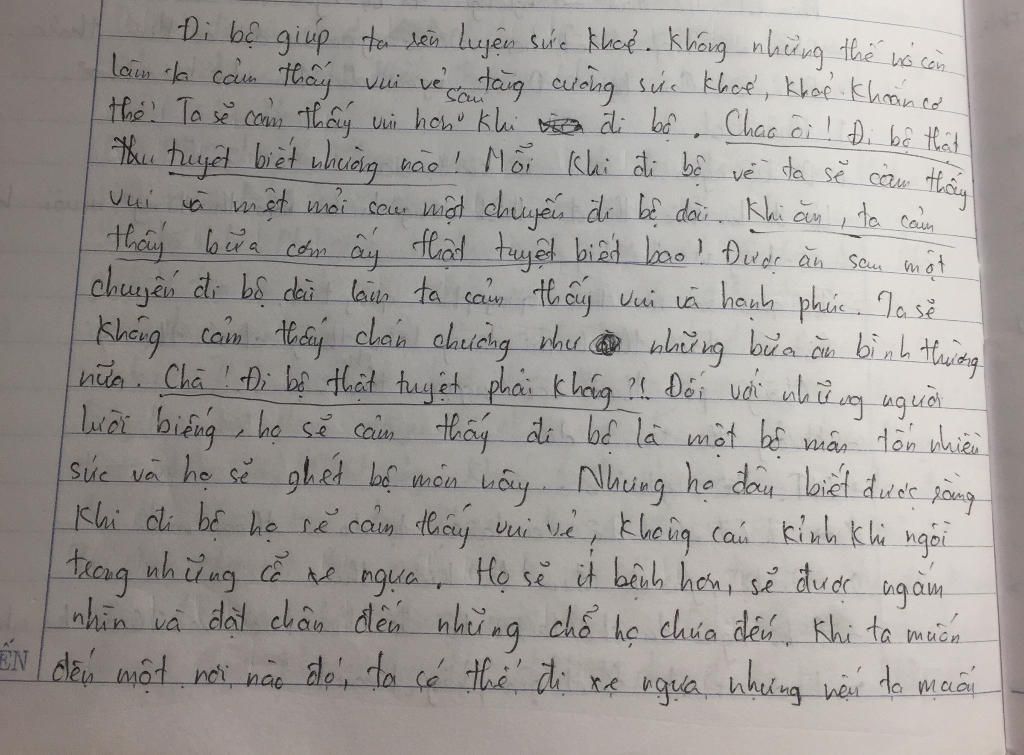 Đi bộ giúp ta rèn luyện sức khoẻ. Không những thế nó còn
làm ta cảm thấy vui vẻ, tăng cường sức khoẻ, khoẻ khoắn cơ
thể! Ta sẽ cảm thấy vui hơn khi sau đi bộ. Chao ôi! Đi bộ thật
tuyệt biết nhường nào! Mỗi khi đi bộ về ta sẽ cảm thấy
vui và mệt mỏi sau một chuyến đi bộ dài. Khi ăn, ta cảm
thấy bữa cơm ấy thật tuyệt biết bao! Được ăn sau một
chuyến đi bộ dài làm ta cảm thấy vui và hạnh phúc. Ta sẽ
không cảm thấy chán chường như những bữa ăn bình thường
nữa. Chà! Đi bộ thật tuyệt phải không?! Đối với những người
lười biếng, họ sẽ cảm thấy đi bộ là một bộ môn tốn nhiều
sức và họ sẽ ghét bộ môn này. Nhưng họ đâu biết được rằng
khi đi bộ họ sẽ cảm thấy vui vẻ, không cáu kỉnh khi ngồi
trong những cỗ xe ngựa. Họ sẽ ít bệnh hơn, sẽ được ngắm
nhìn và đặt chân đến những chỗ họ chưa đến. Khi ta muốn
đến một nơi nào đó, ta có thể đi xe ngựa nhưng nếu ta muốn
ẾN